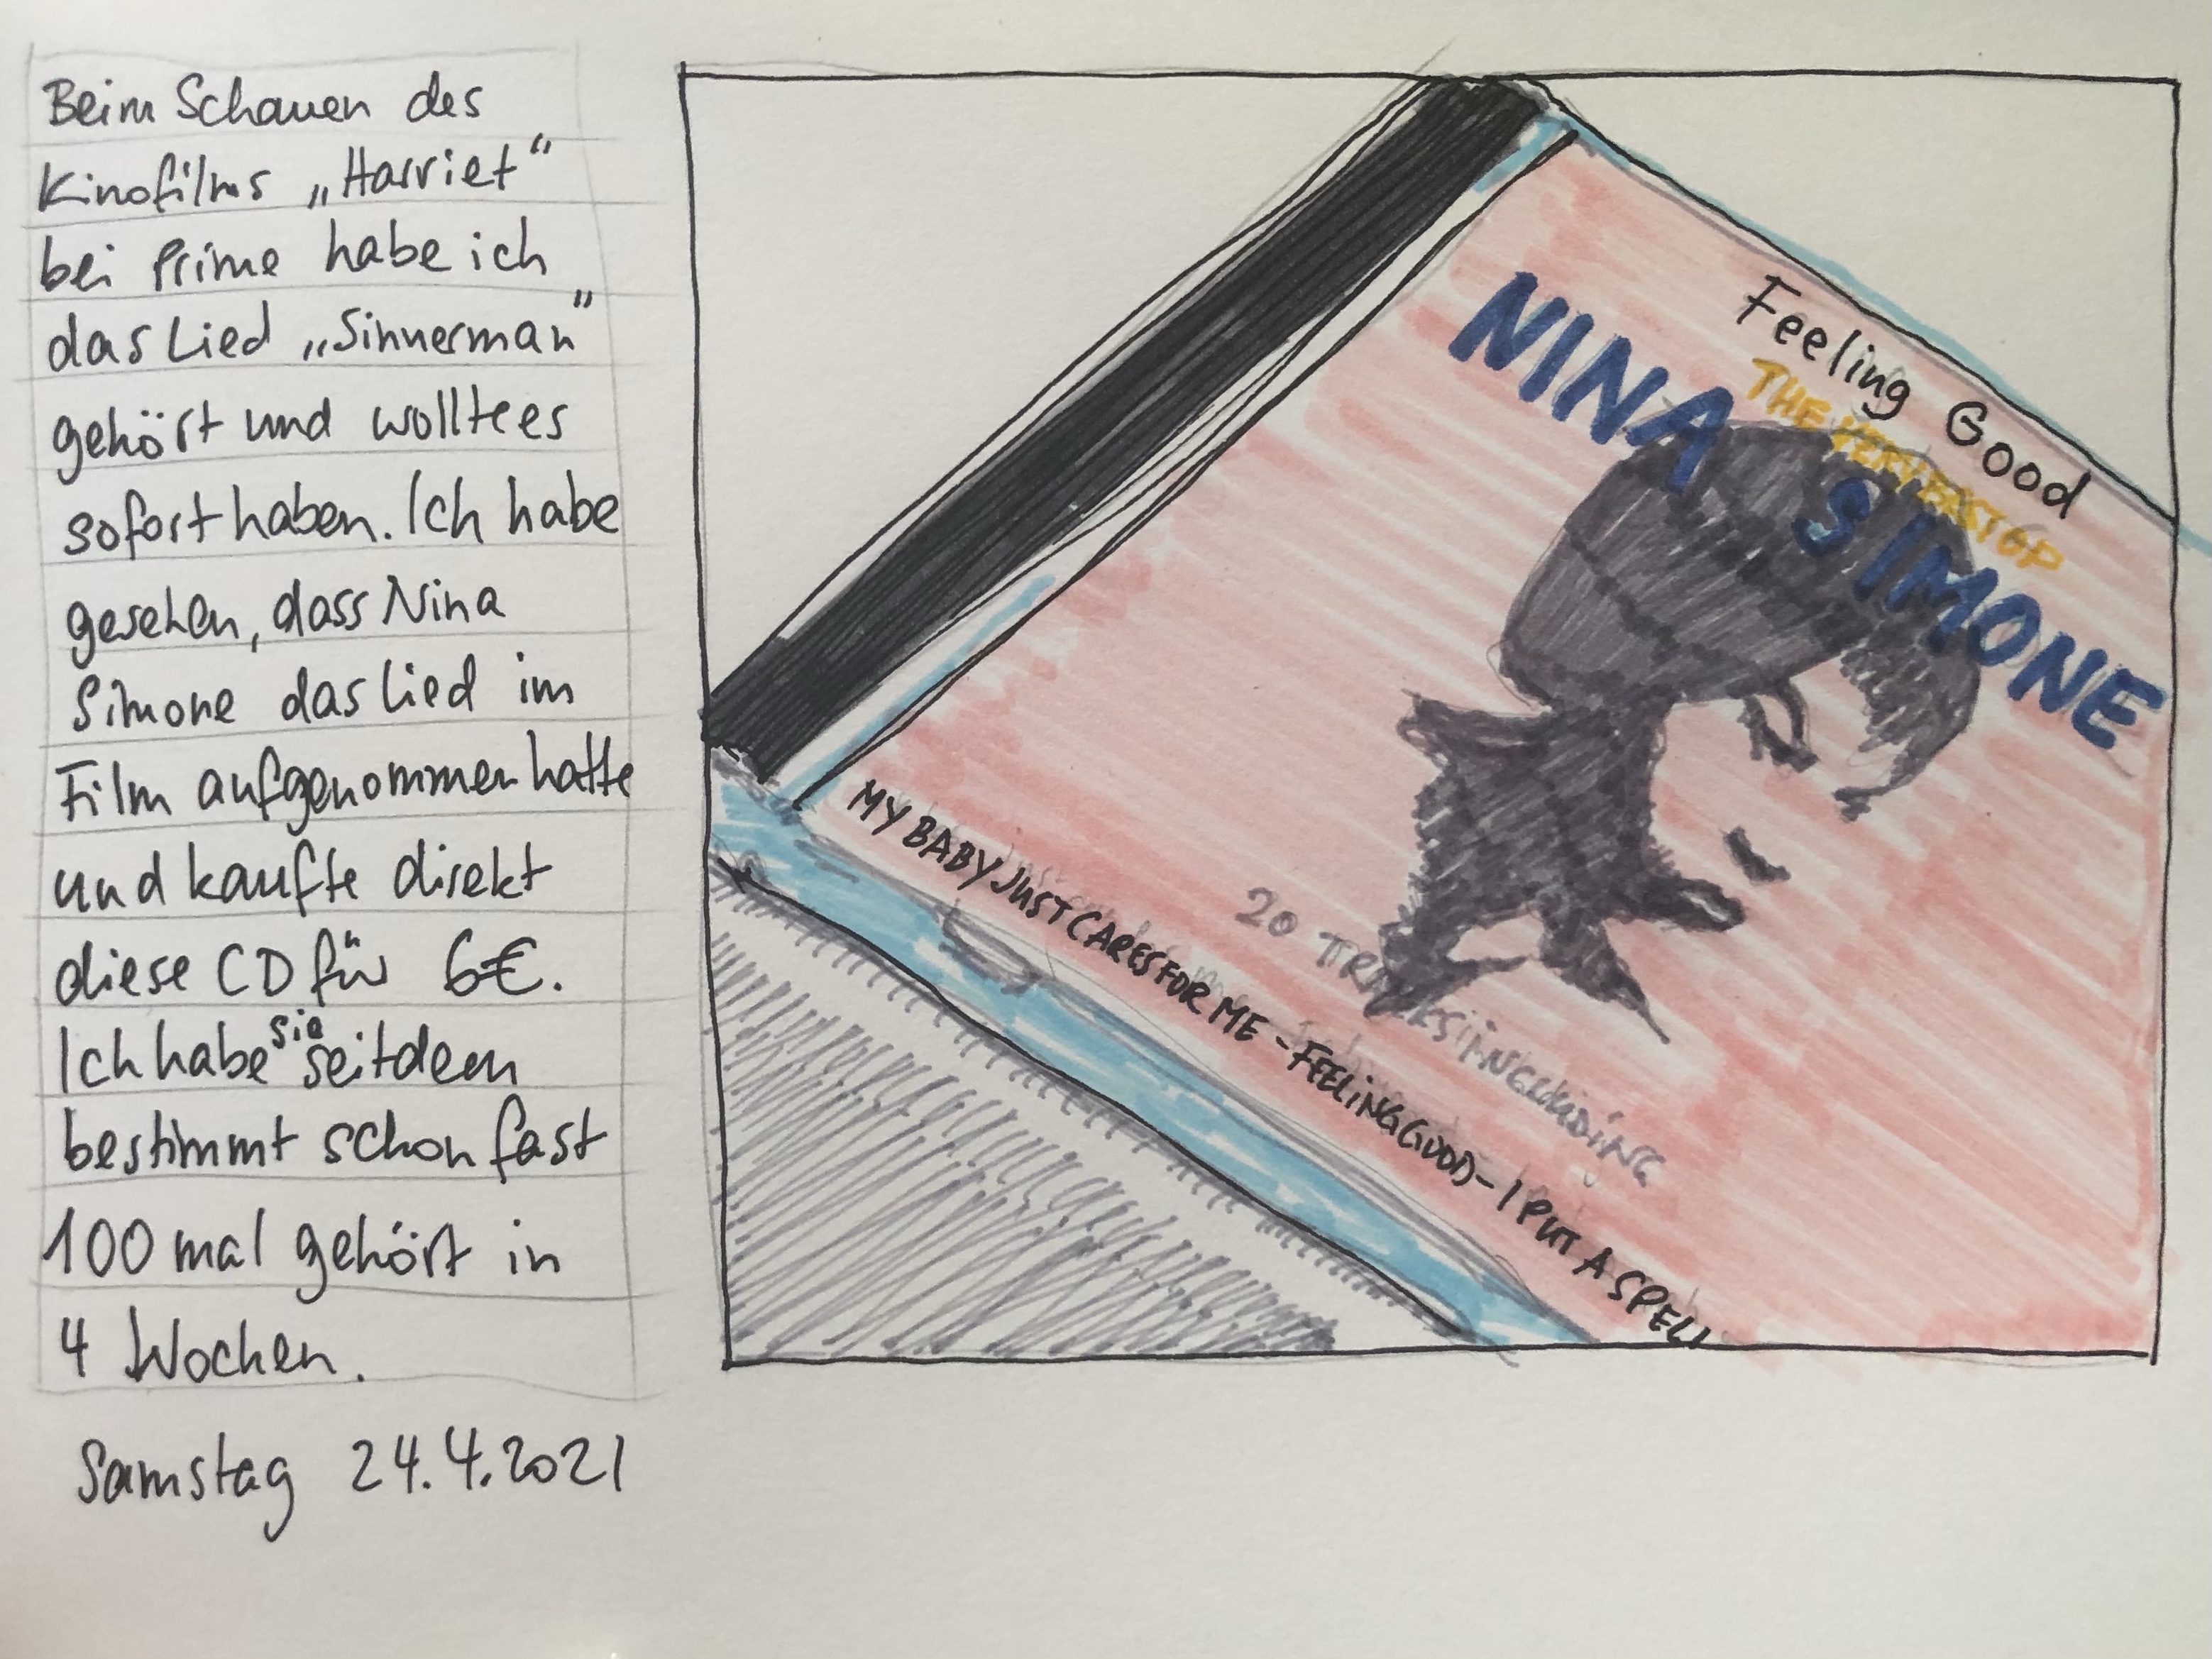 Beim Schauen des
Kinofilms „Harriet“
bei Prime habe ich
das Lied „Sinnerman“
gehört und wollte es
sofort haben. Ich habe
gesehen, dass Nina
Simone das Lied im
Film aufgenommen hatte
und kaufte direkt
diese CD für 6€.
Ich habe sie seitdem
bestimmt schon fast
100 mal gehört in
4 Wochen.
Samstag 24.4.2021
Feeling Good
THE VERY BEST OF
NINA SIMONE
20 TRACKS INCLUDING
MY BABY JUST CARES FOR ME - FEELING GOOD - I PUT A SPELL